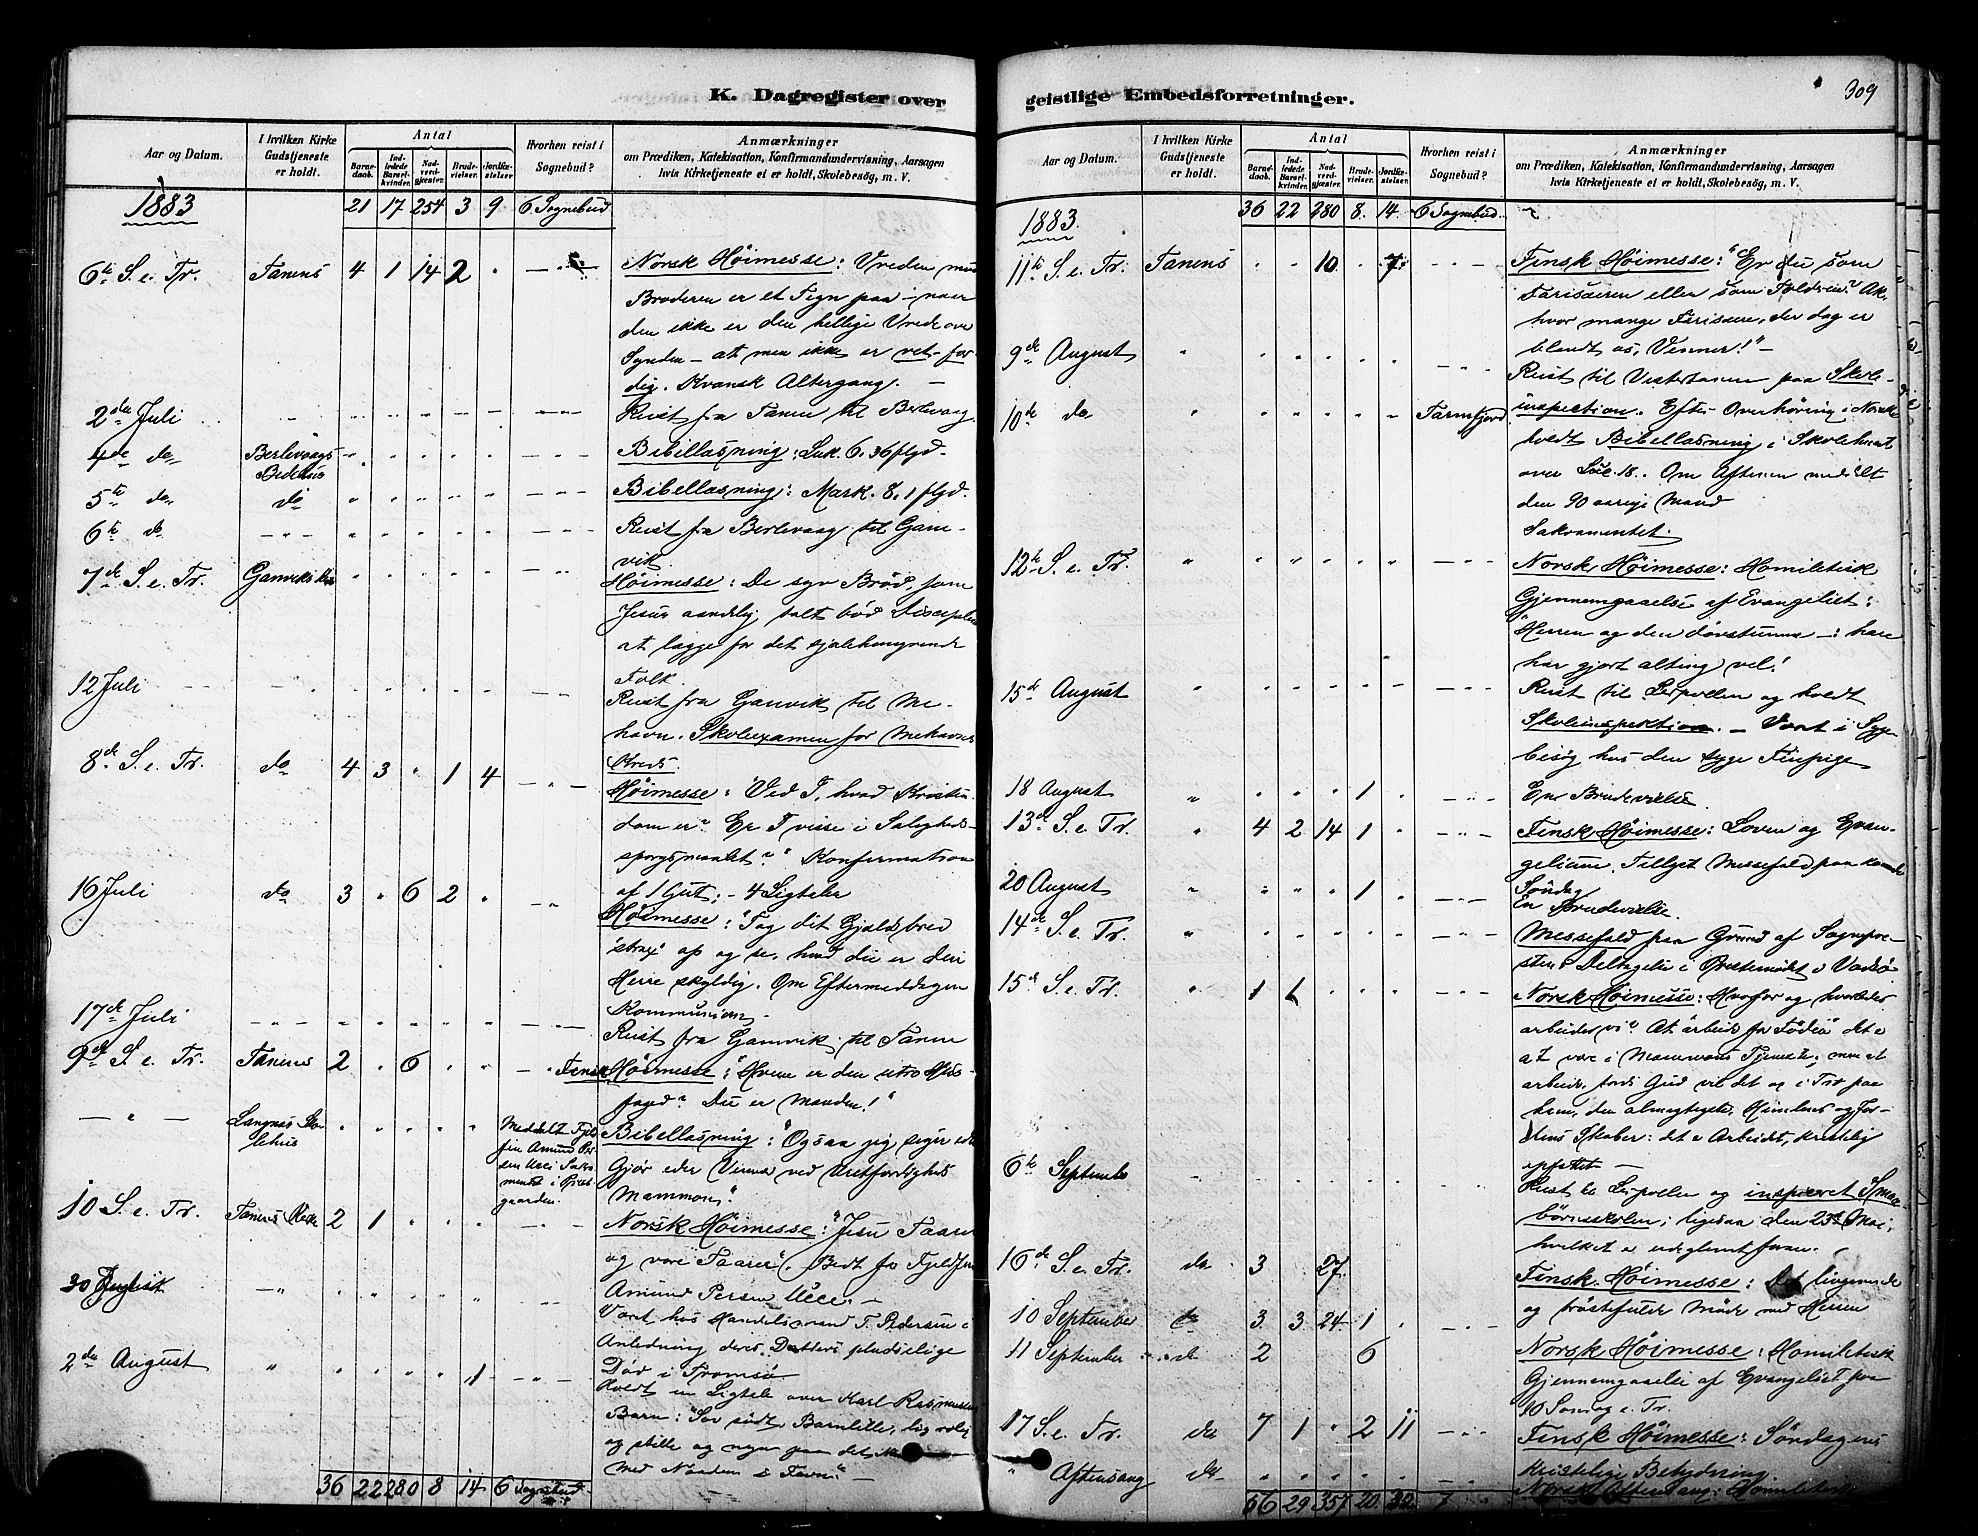 K. Dagregister over
Aar og Datum.
I hvilken Kirke Gudstjeneste er holdt.
Antal
Barnedaab.
Indledede Barselkvinder.
Nadverdgjæster.
Brudevielser.
Jordfæstelser.
Hvorhen reist i Sognebud?
Anmærkninger
om Prædiken, Katekisation, Konfirmandundervisning, Aarsagen
hvis Kirketjeneste ei er holdt, Skolebesøg, m. V.
1883 21 17 254 3 9 6 Sognebud
6te S. e. Tr. Tanens 4 1 14 2 Norsk Høimesse: Vreden mod
Broderen er et Tegn paa – naar
den ikke er den hellige Vrede over
Synden – at men ikke er ret-fær
dig. Kvænsk Altergang. –
2den Juli Reist fra Tanen til Berlevaag.
4de do Berlevaags Bedehus Bibellæsning: Luk. 6. 36 flgd.
5te do do Bibellæsning: Mark. 8, 1 flgd.
6te do Reist fra Berlevaag til Gam-
vik
7de S. e. Tr. Gamviks Høimesse: De syv Brød, som
Jesus aandelig talt bød Disciplene
at lægge for det sjælehungrende
Folk.
12 Juli Reist fra Gamvik til Me-
havn. Skoleexamen for Mehavns
Kreds.
8de S. e. Tr. do 4 3 1 4 Høimesse: Ved I, hvad Kristen-
dom er? Er I visse i Saligheds-
spørgsmaalet? Konfirmation
af 1 Gut; – 4 Ligtaler
16 Juli do 3 6 2 Høimesse: "Tag dit Gjældsbrev
strax op og se, hvad du er din
Herre skyldig. Om Eftermiddagen
Kommunion.
17de Juli Reist fra Gamvik til Tanen
9de S. e. Tr. Tanens 2 6 Finsk Høimesse: Hvem er den utro Hus-
foged? Du er Manden!"
Langnæs Sko-
lehus Meddelt Fjeld-
fin Amund Per-
sen Utsi Sakra-
mentet i Præste-
gaarden. Bibellæsning: "Ogsaa jeg siger eder
Gjør eder Venner ved Uretfærdigheds
Mammon".
10 S. e. Tr. Tanens Kirke 2 1 Norsk Høimesse: "Jesu Taarer
og vore Taarer". Bedt for Fjeldfin
Amund Persen Utsi. –
30 Været hos Handelsmand T. Pedersen i
Anledning deres Datters pludselige
Død i Tromsø
2den August 1 Holdt en Ligtale over Karl Rasmussens
Barn: "Sov sødt Barnlille, lig rolig
og stille og
Med
36 22 280 8 14 6 Sognebud
geistlige Embedsforretninger.
309
Aar og Datum.
I hvilken Kirke Gudstjeneste er holdt.
Antal
Barnedaab.
Indledede Barselkvinder.
Nadverdgjæster.
Brudevielser.
Jordfæstelser.
Hvorhen reist i Sognebud?
Anmærkninger
om Prædiken, Katekisation, Konfirmandundervisning, Aarsagen
hvis Kirketjeneste ei er holdt, Skolebesøg, m. V.
1883. 36 22 280 8. 14. 6 Sognebud.
11te S. e. Tr. Tanens 10 7 Finsk Høimesse: "Er du som
Farisæeren eller som Tolderen? Ak,
hvor mange Farisæere, der dag er
blandt os, Venner!" –
9de August Reist til Vestertanen paa Skole-
10de do Tarmfjord inspection. Efter Overhøring i Norsk
holdt Bibellæsning i Skolehuset
over Luc. 18. Om Aftenen meddelt
den 90 aarige Mand
Sakramentet.
12te S. e. Tr. Norsk Høimesse: Homiletisk
Gjennemgaaelse af Evangeliet:
Herren og den døvstumme –: han
har gjort alting vel!
15de August Reist til Leirpollen og holdt
Skoleinspektion. – Været i Syge-
besøg hos den syge Finpige
18 August 1 En Brudevielse
13de S. e. Tr. 4 2 14 1 Finsk Høimesse: Loven og Evan-
gelium. Tillyst Messefald paa kommende
Søndag
20 August 1 En Brudevielse.
14de S. e. Tr. Messefald paa Grund af Sognepræ-
stens Deltagelse i Præstemødet i Vadsø
15de S. e. Tr. 1 1 Norsk Høimesse: Hvorfor og hvorledes
arbeides vi? At arbeide for Føden det er
at være i Mammons Tjeneste; men at
arbeide, fordi Gud vil det og i Tro paa
ham, den almægtige, Himlens og Jor-
dens Skaber: det er Arbeidet, kristelig
opfattet –
6te September Reist til Leirpollen og inspiceret Smaa-
børnsskolen; ligesaa den 23de Mai,
hvilket er udeglemt foran.
16de S. e. Tr. do 3 27. Finsk Høimesse: Det livgivende
og trøstefulde Møde med Herren
10 September do 3. 3 24. 1 Norsk Høimesse: Homiletisk
11 September do 2 6 Gjennemgaaelse af Evangeliet paa
10 Søndag e. Tr.
17 S. e. Tr. do 7 1 2 11 Finsk Høimesse: Søndagens
kristelige Betydning.
" Aftensang do Norsk Aftensang: Homiletisk
66 29 357 20. 32. 7